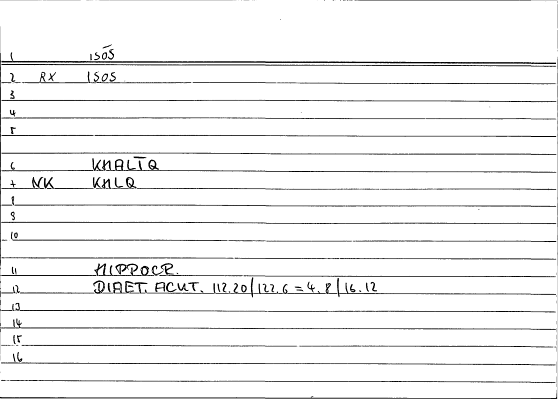 1 ISŌS
2 RX ISOS
3
4
5
6 KHALT̄Q
7 NK KHLQ
8
9
10
11 HIPPOCR.
12 DIAET. ACUT. 112.20/122.6 = 4.8/16.12
13
14
15
16